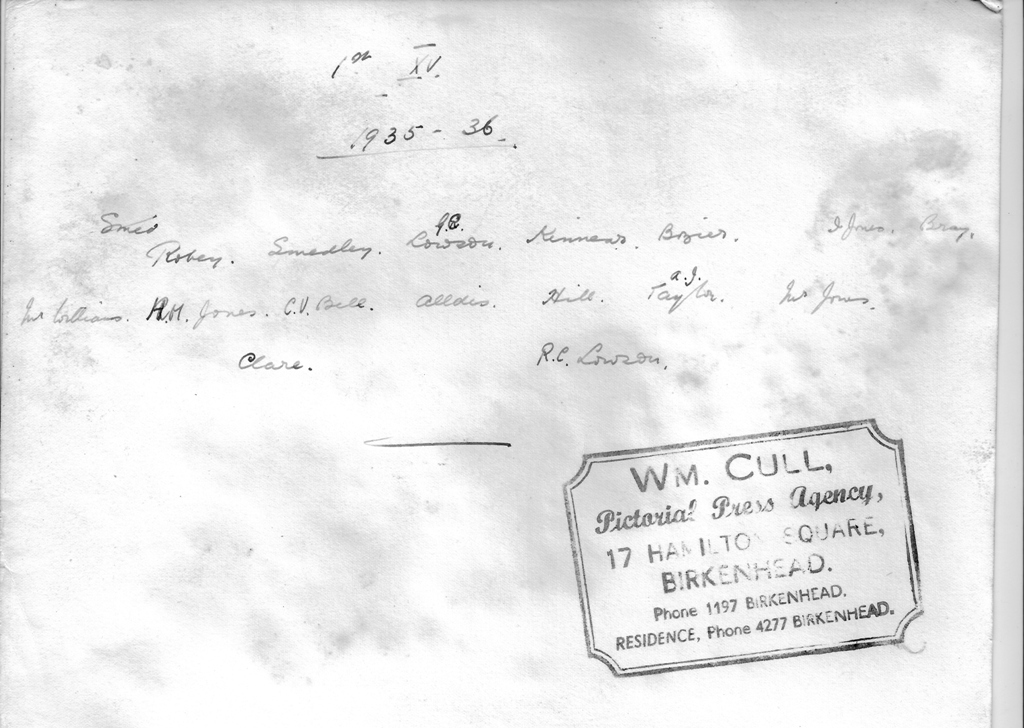 1st XV.
1935 - 36.
Robey. Smedley. J.E. Lowson. Kinnear. Bozier. I Jones. Bray.
Mr Williams. H.M. Jones. C.V. Bell. Alldis. Hill. A.J. Taylor. Mr Jones.
Clare. R.C. Lowson.
WM. CULL,
Pictorial Press Agency,
17 HAMILTON SQUARE,
BIRKENHEAD.
Phone 1197 BIRKENHEAD.
RESIDENCE, Phone 4277 BIRKENHEAD.